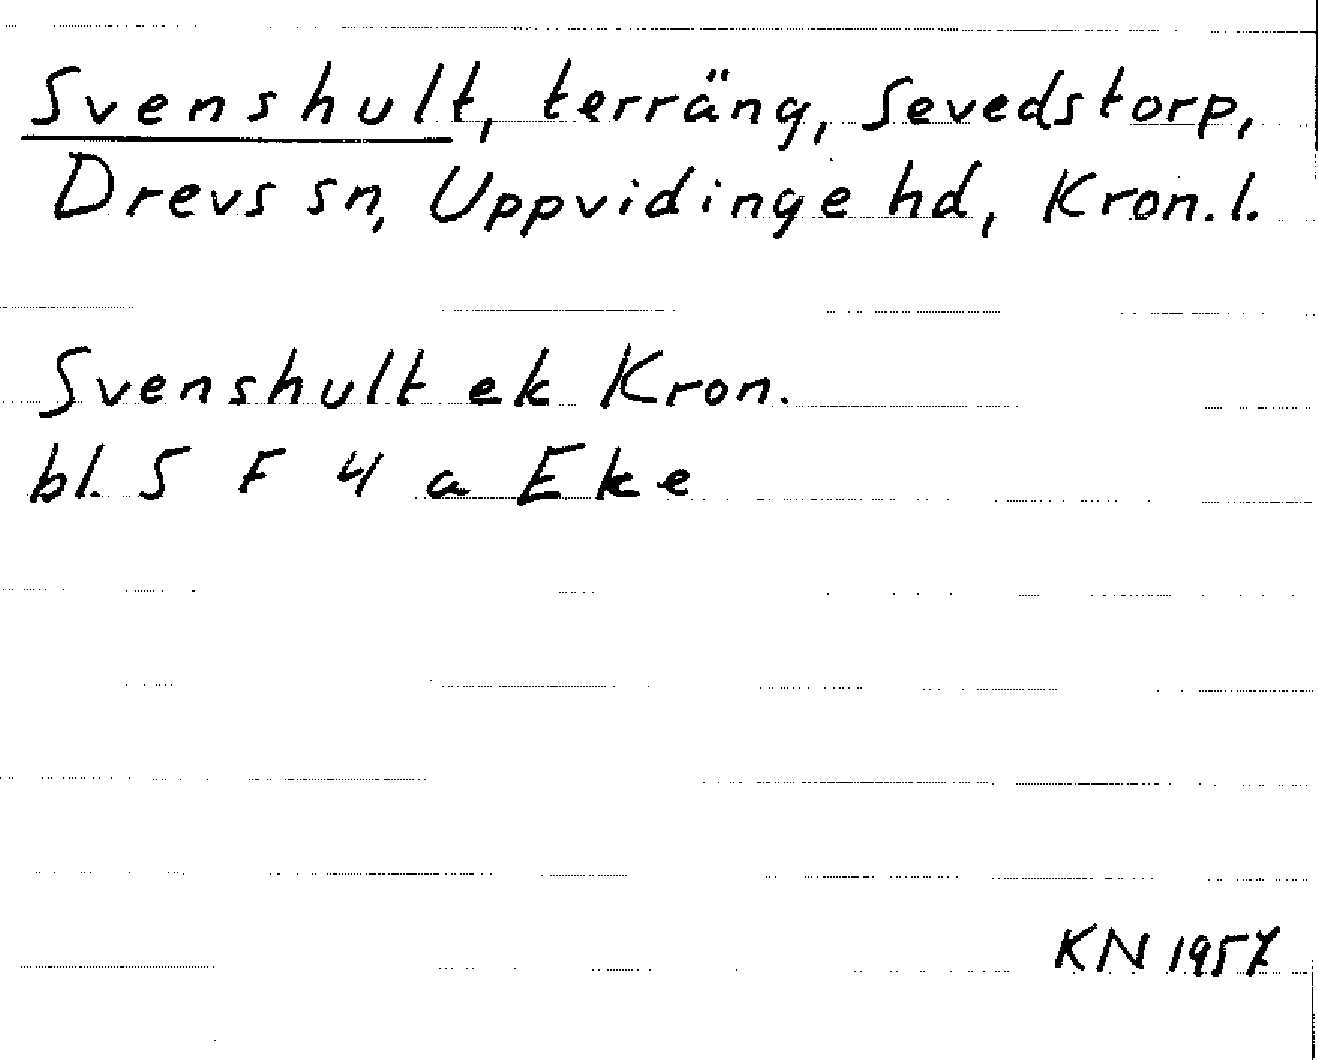 Svenshult, terräng, Sevedstorp,
Drevs sn, Uppvidinge hd, Kron.l.
Svenshult ek Kron.
bl. 5 F 4 a Eke
KN 1957